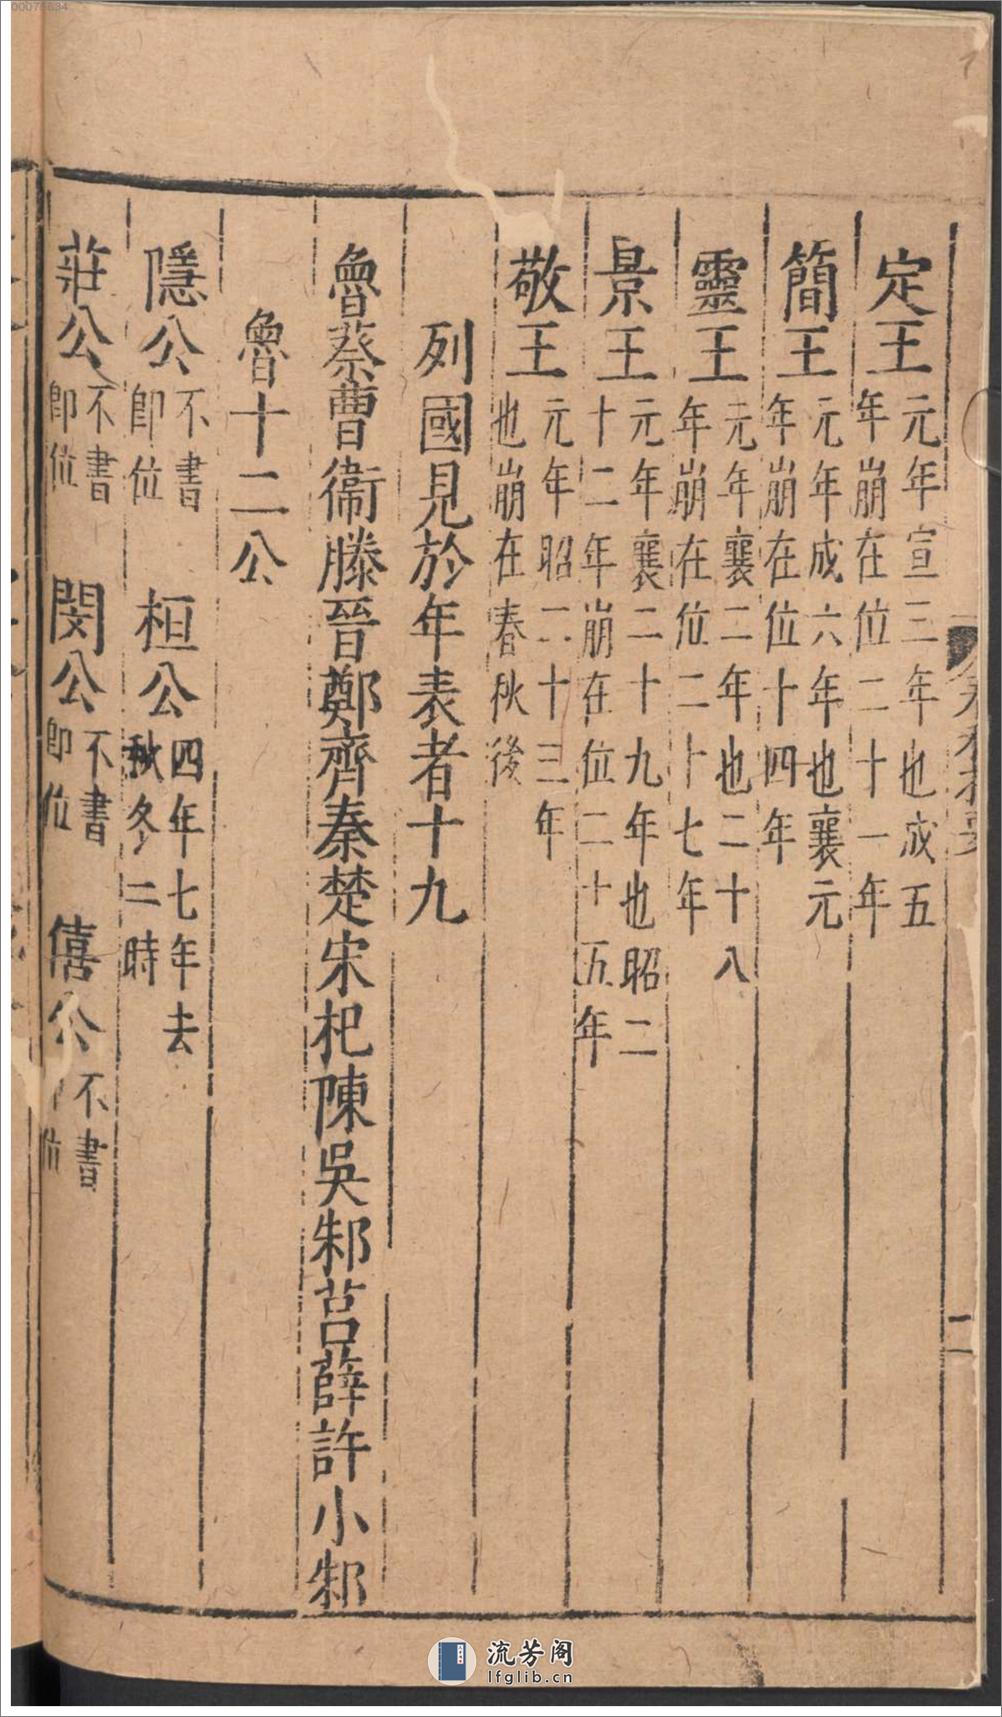 定王 元年宣三年也成五
年崩在位二十一年
簡王 元年成六年也襄元
年崩在位十四年
靈王 元年襄二年也二十八
年崩在位二十七年
景王 元年襄二十九年也昭二
十二年崩在位二十五年
敬王 元年昭二十三年
也崩在春秋後
列國見於年表者十九
魯蔡曹衞滕晉鄭齊秦楚宋杞陳吳邾莒薛許小邾
魯十二公
隱公 不書
卽位
桓公 四年七年去
秋冬二時
莊公 不書
卽位
閔公 不書
卽位
僖公 不書
位
二
00076634
流芳阁
lfglib.cn